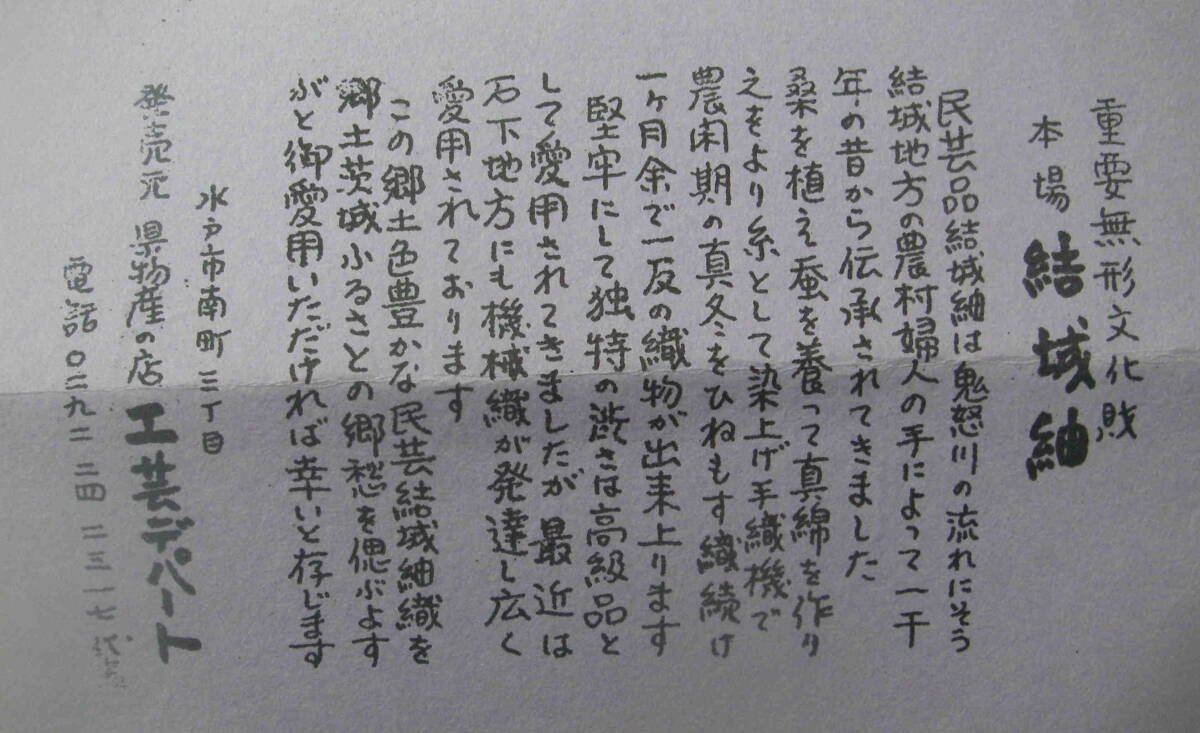 重要無形文化財
本場 結城紬
民芸品結城紬は鬼怒川の流れにそう
結城地方の農村婦人の手によって一千
年の昔から伝承されてきました
桑を植え蚕を養って真綿を作り
えをより糸として染上げ手織機で
農閑期の真冬をひねもす織続け
一ヶ月余で一反の織物が出来上ります
堅牢にして独特の渋さは高級品と
して愛用されてきましたが 最近は
石下地方にも機械織が発達し広く
愛用されております
この郷土色豊かな民芸結城紬織を
郷土茨城ふるさとの郷愁を偲ぶよす
がと御愛用いただければ幸いと存じます
水戸市南町三丁目
発売元 県物産の店 工芸デパート
電話〇二九二 二四 二三一七 代表